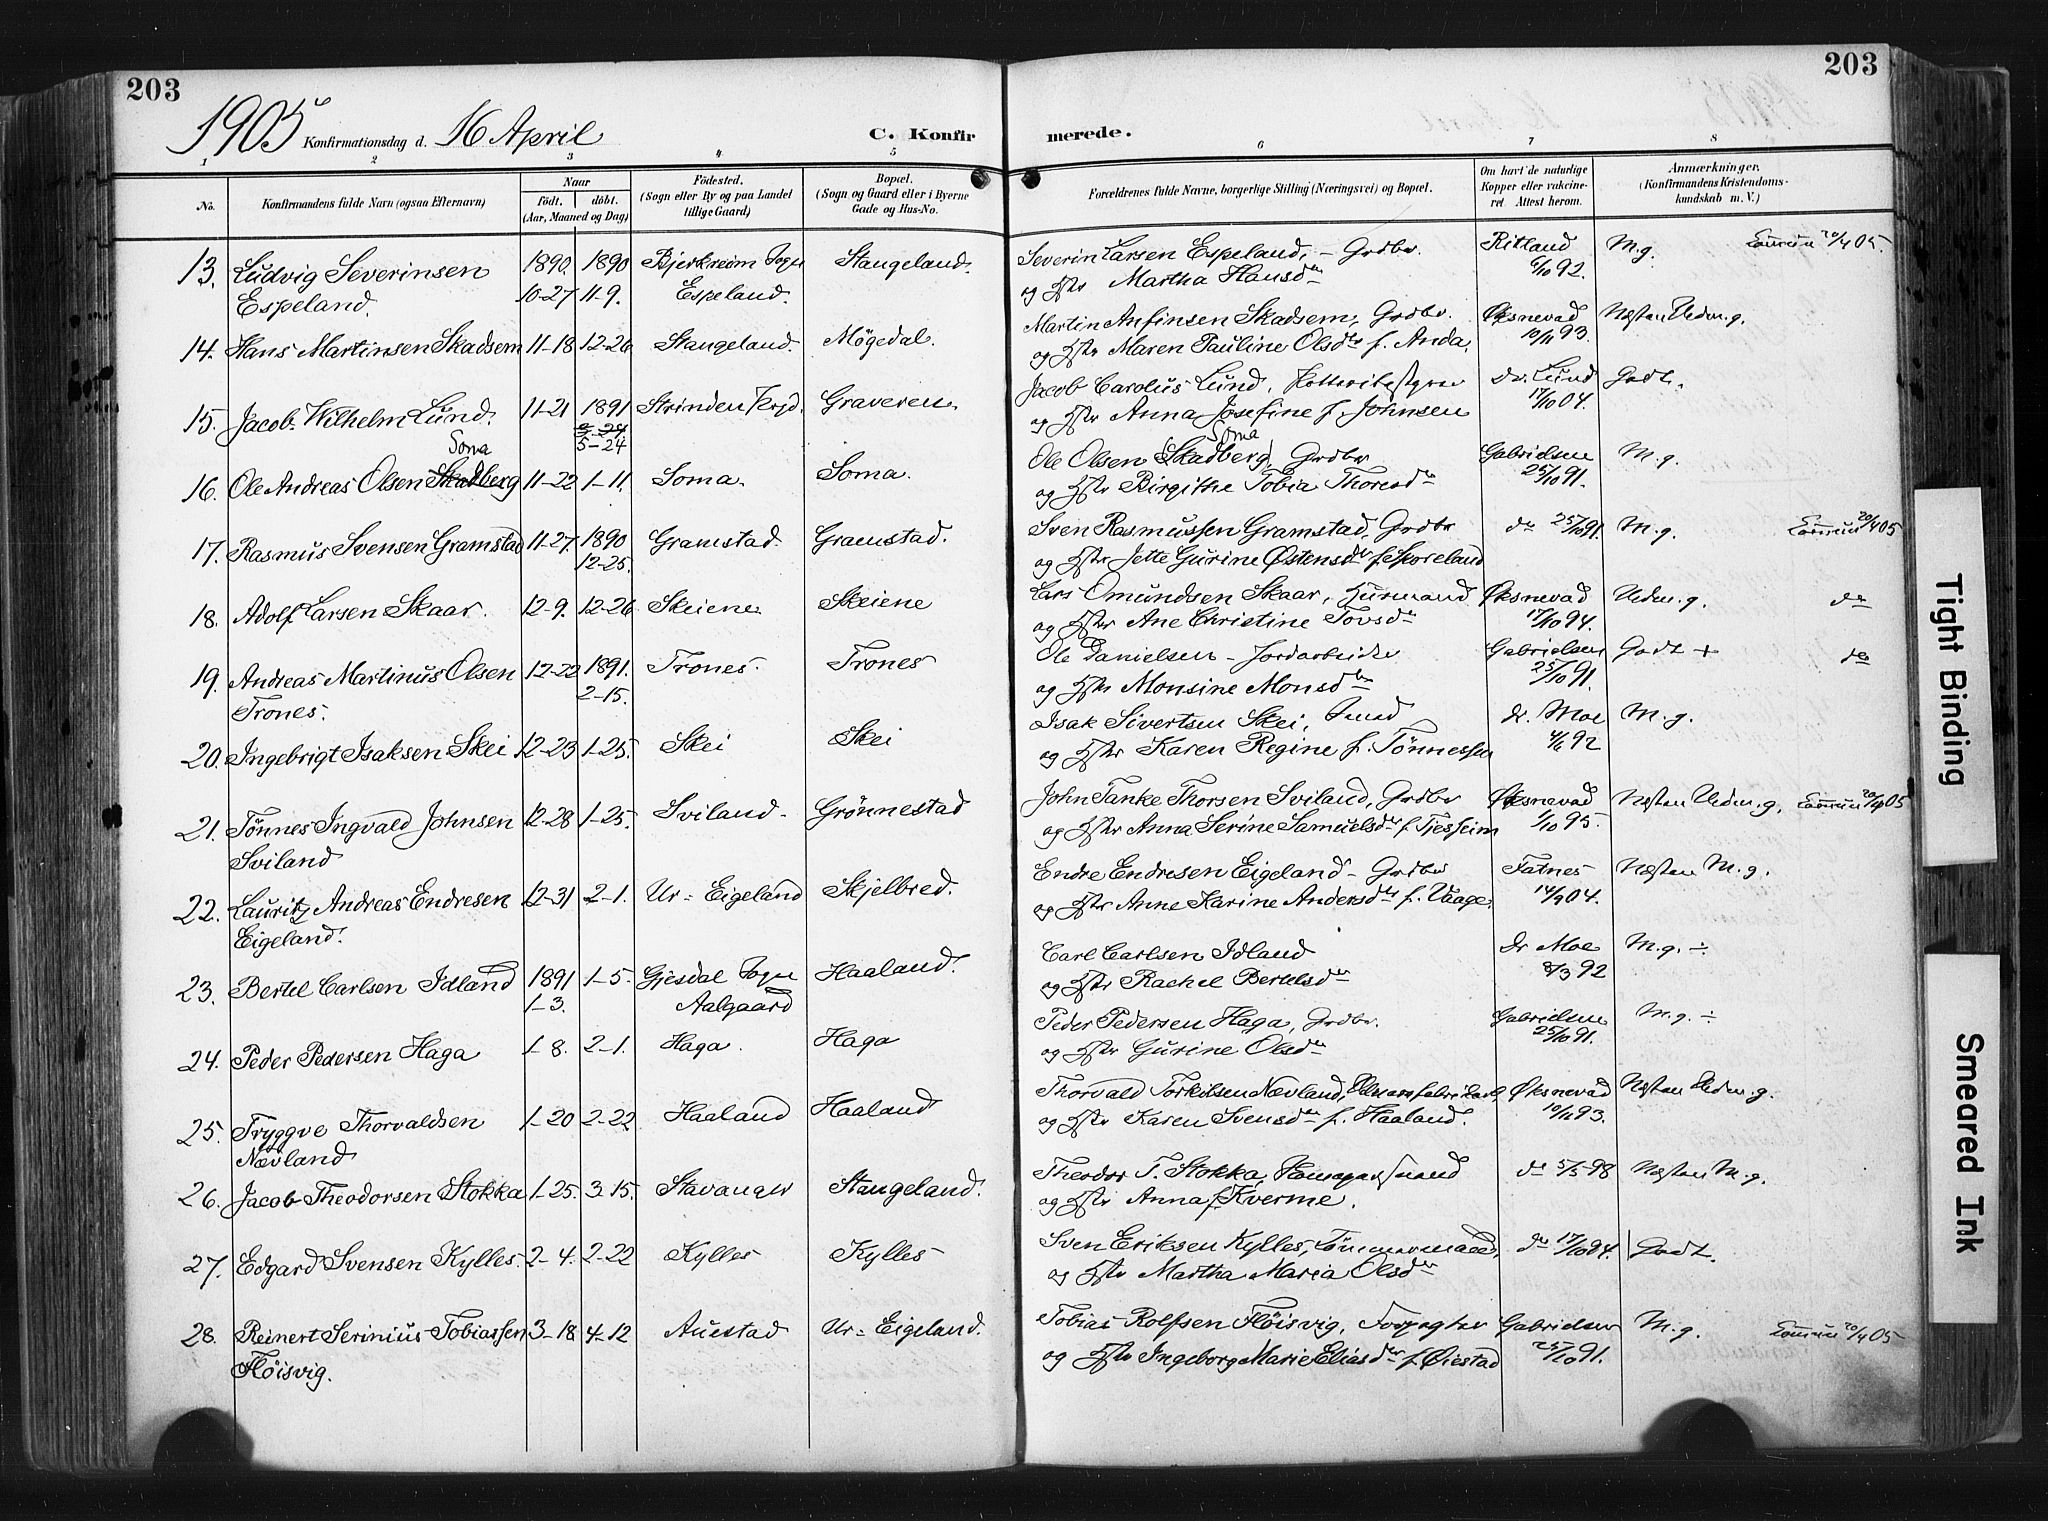 203
203
1905 Konfirmationsdag d. 16 April
C. Konfirmerede.
1 2 3 4 5 6 7 8
No. Konfirmandens fulde Navn (ogsaa Efternavn) Naar født. døbt. (Aar, Maaned og Dag) Fødested. (Sogn eller By og paa Landet tillige Gaard) Bopæl. (Sogn og Gaard eller i Byerne Gade og Hus-No. Forældrenes fulde Navne, borgerlige Stilling (Næringsvei) og Bopæl. Om havt de naturlige Kopper eller vakcineret Attest herom. Anmærkninger. (Konfirmandens Kristendomskundskab m. V.)
13. Ludvig Severinsen 1890. 1890 Bjerkreim Sogn Stangeland. Severin Larsen Espeland, - Grdbr. Ritland M.g. 20/4 05
Espeland. 10-27 11-9. Espeland. og Hstr Martha Hansdtr 6/10 92.
14. Hans Martinsen Skadsem 11-18 12-26 Stangeland. Mögedal. Martin Anfinsen Skadsem, Grdbr. Øksnevad Næsten Udm.g.
og Hstr Maren Pauline Olsdtr f. Anda. 10/11 93.
15. Jacob Wilhelm Lund. 11-21 1891 Strinden Graveren. Jacob Carolus Lund, dr. Lund Godt.
5-24 og Hstr Anna Josefine f. Johnsen 17/10 04.
Soma Soma
16. Ole Andreas Olsen Skadberg 11-22 1-11. Soma. Soma. Ole Olsen (Skadberg) Grdbr Gabrielsen M.g.
og Hstr Birgithe Tobia Thoresdtr 25/10 91.
17. Rasmus Svensen Gramstad 11-27. 1890 Gramstad. Gramstad. Sven Rasmussen Gramstad, Grdbr do 25/10 91. M.g. 20/4 05
12-25. og Hstr Jette Gurine Østensdtr f. Sporeland
18. Adolf Larsen Skaar. 12-9. 12-26 Skeiene Skeiene Lars Omundsen Skaar, Husmand Øksnevad Udm.g. do
og Hstr Ane Christine Tovsdtr 17/10 94.
19. Andreas Martinus Olsen 12-22 1891. Trones. Trones Ole Danielsen - Jordarbeider Gabrielsen Godt + do
Trones. 2-15. og Hstr Monsine Monsdtr 25/10 91.
20. Ingebrigt Isaksen Skei 12-23 1-25. Skei Skei Isak Sivertsen Skei, Smed dr. Moe M.g.
og Hstr Karen Regine f. Tönnessen 4/6 92
21. Tönnes Ingvald Johnsen 12-28 1-25. Sviland. Grönnestad John Tanke Thorsen Sviland, Grdbr Øksnevad Næsten Udm.g. 20/4 05
Sviland og Hstr Anna Serine Samuelsdtr f. Tjesseim 1/10 95.
22. Lauritz Andreas Endresen 12-31 2-1. Ur- Eigeland Skjelbred. Endre Endresen Eigeland - Grdbr Fatnes Næsten M.g.
Eigeland. og Hstr Anne Karine Andersdtr f. Vaage. 14/9 04.
23. Bertel Carlsen Idland 1891 1-5. Gjesdal Sogn Haaland. Carl Carlsen Idland Dr Moe M.g. ÷
1-3. Aalgaard og Hstr Rachel Bertelsdtr 8/3 92
24. Peder Pedersen Haga 1-8. 2-1. Haga. Haga Peder Pedersen Haga, Grdbr. Gabrielsen M.g. ÷
og Hstr Gurine Olsdtr 25/10 91.
25. Tryggve Thorvaldsen 1-20 2-22 Haaland Haaland Thorvald Torkelsen Nævland, Øksnevad Næsten Udm.g.
Nævland og Hstr Karen Svensdtr f. Haaland. 10/11 93.
26. Jacob Theodorsen Stokka 1-25. 3-15. Stavanger Stangeland. Theodor T. Stokka, do 5/5-98 Næsten M.g.
og Hstr Anna f. Kverme.
27. Edgard Svensen Kylles. 2-4. 2-22 Kylles Kylles Sven Eriksen Kylles, Tömmermand, do 17/10 94. Godt.
og Hstr Martha Maria Olsdtr
28. Reinert Serinius Tobiassen 3-18 4-12 Auestad Ur- Eigeland. Tobias Rolfsen Flöisvig, Forpagter Gabrielsen M.g. 20/4 05
Flöisvig. og Hstr Ingeborg Marie Eliasdtr f. Øiestad 25/10 91.
Tight Binding
Smeared Ink